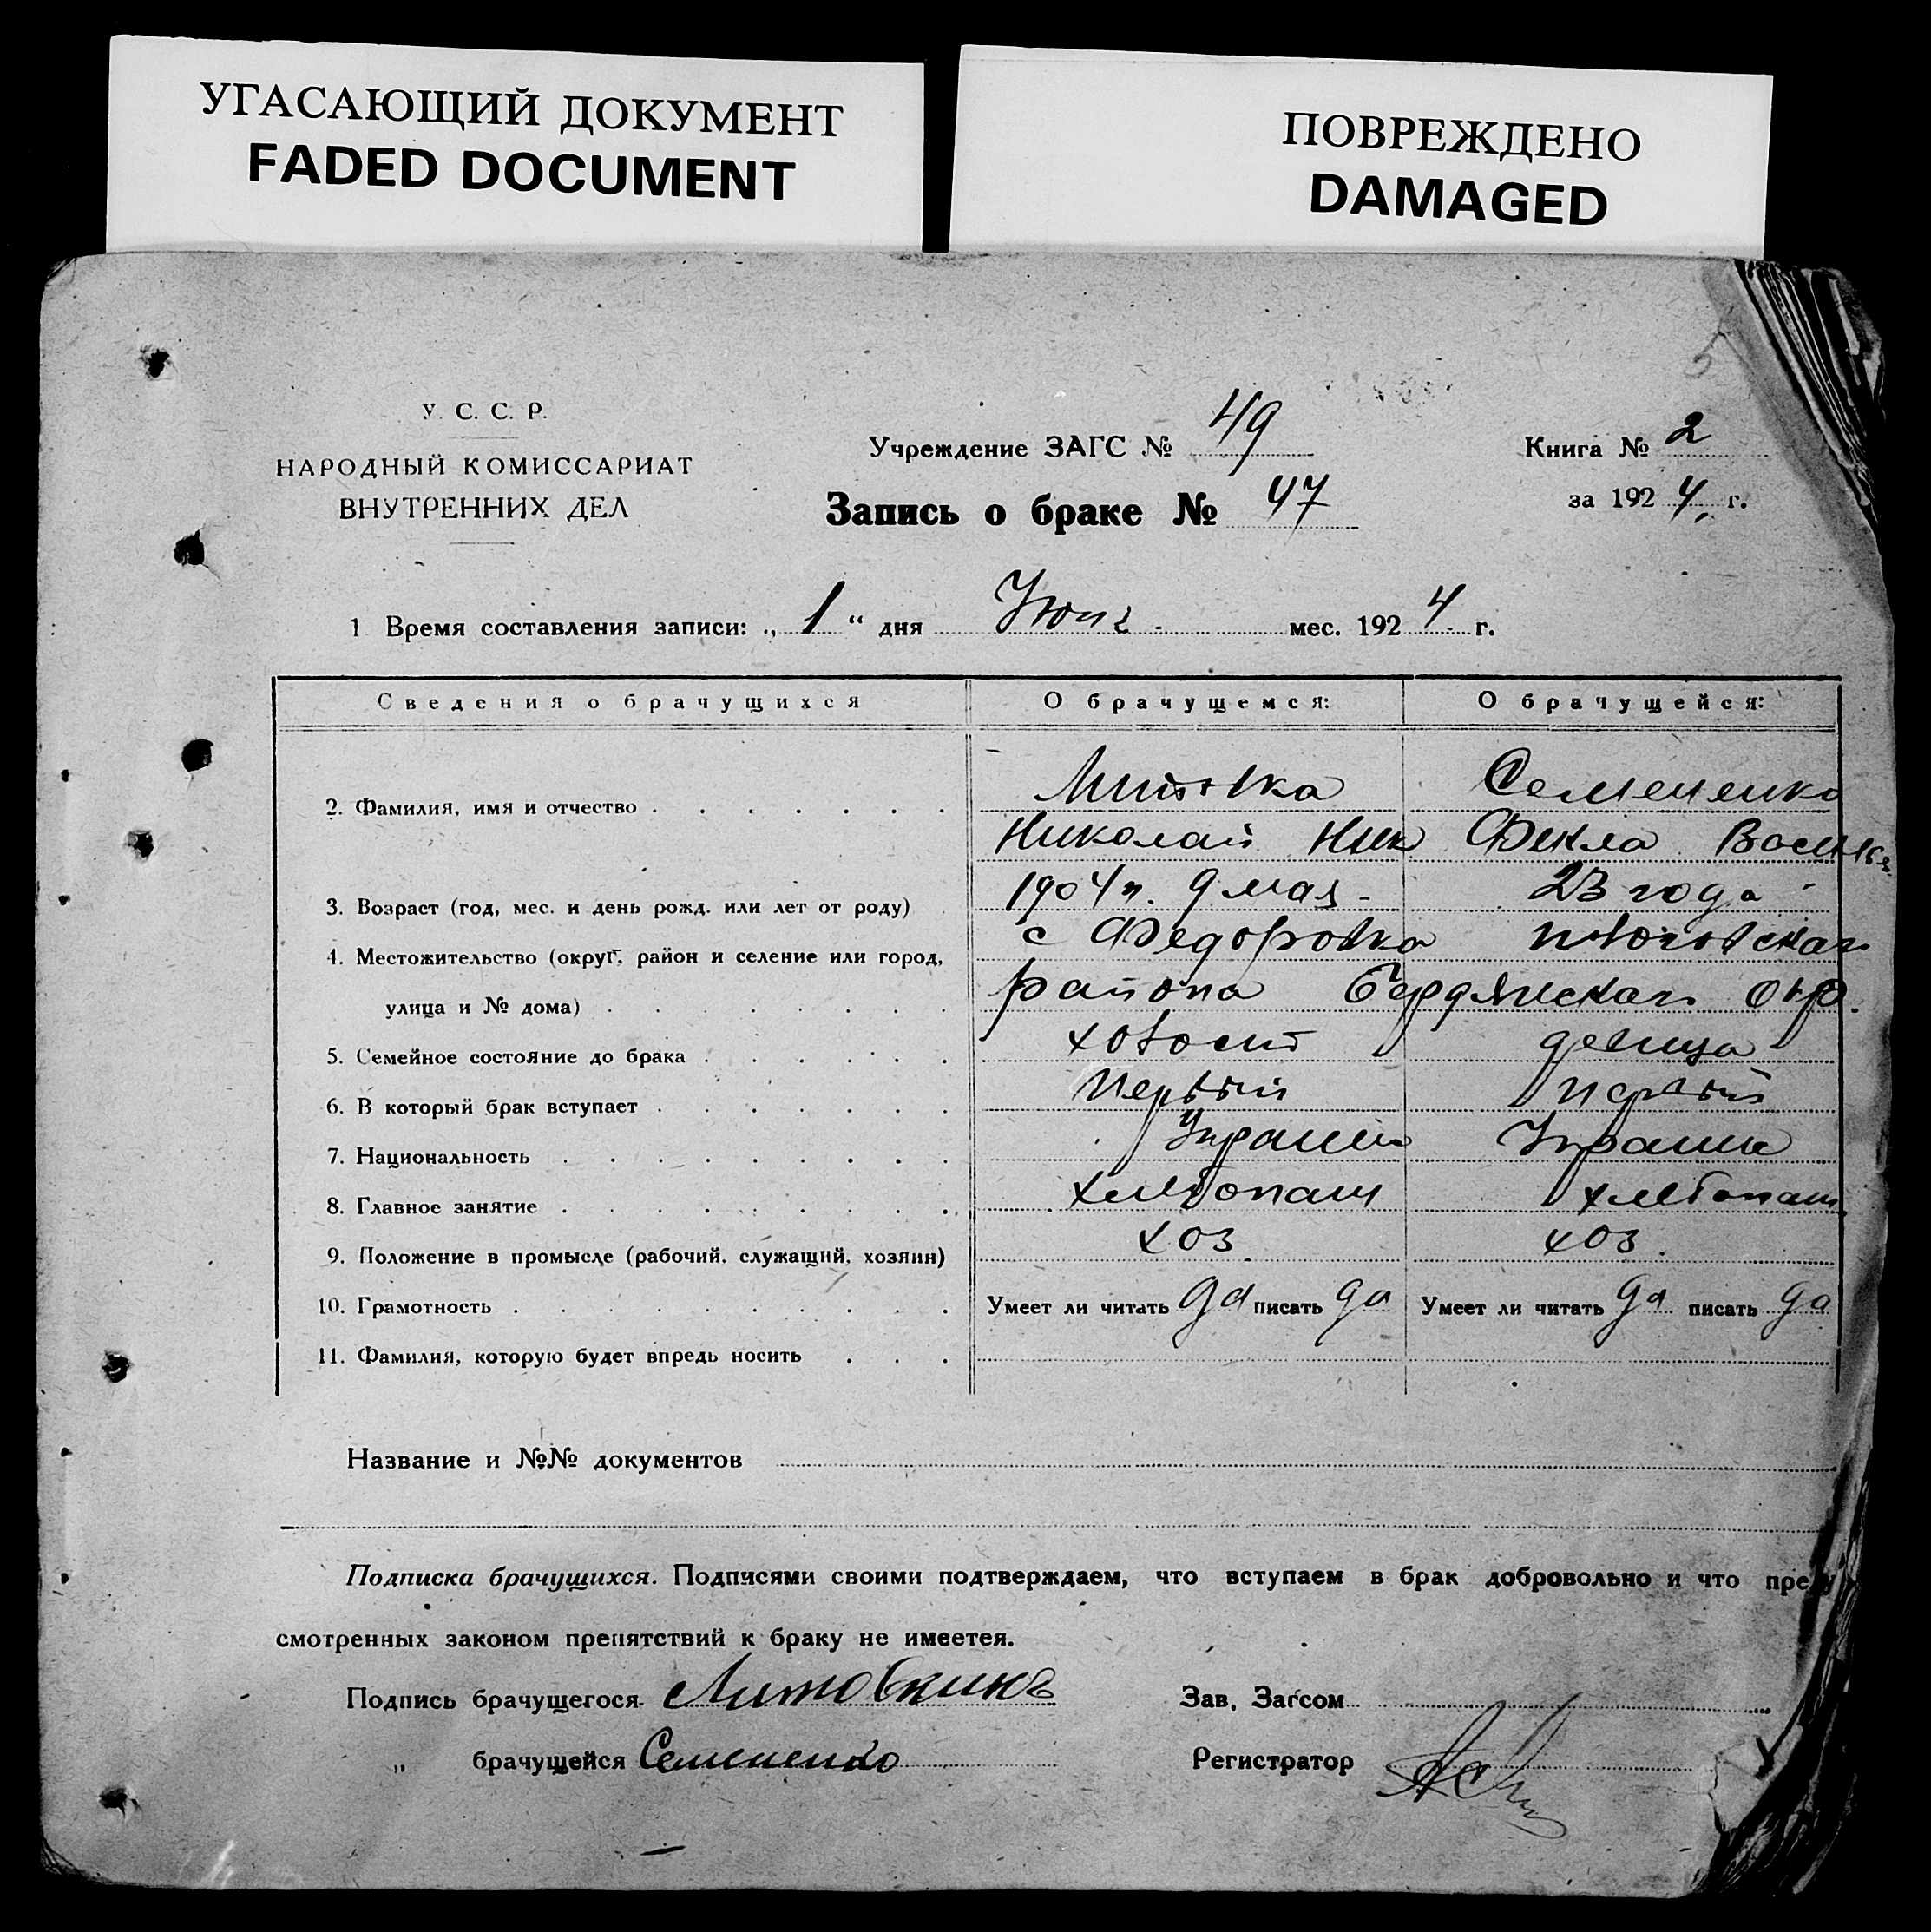 УГАСАЮЩИЙ ДОКУМЕНТ
FADED DOCUMENT
ПОВРЕЖДЕНО
DAMAGED
5
У. С. С. Р.
НАРОДНЫЙ КОМИССАРИАТ
ВНУТРЕННИХ ДЕЛ
Учреждение ЗАГС № 49
Книга № 2
Запись о браке № 47
за 1924 г.
1 Время составления записи: „ 1 “ дня мес. 1924 г.
Сведения о брачущихся О брачущемся: О брачущейся:
2. Фамилия, имя и отчество Семененко
Николай Ник Фекла Василь
3. Возраст (год, мес. и день рожд. или лет от роду) 1904 г. 9 мая - 23 года
4. Местожительство (округ, район и селение или город, с Федоровка
улица и № дома) района Бердянскаго Окр.
5. Семейное состояние до брака холост девица
6. В который брак вступает первый первый
7. Национальность Украин Украин
8. Главное занятие хлебопаш хлебопаш
9. Положение в промысле (рабочий, служащий, хозяин) хоз хоз.
10. Грамотность Умеет ли читать да писать да Умеет ли читать да писать да
11. Фамилия, которую будет впредь носить
Название и №№ документов
Подписка брачущихся. Подписями своими подтверждаем, что вступаем в брак добровольно и что преду
смотренных законом препятствий к браку не имеетея.
Подпись брачущегося Зав. Загсом
„ брачущейся Семененко Регистратор